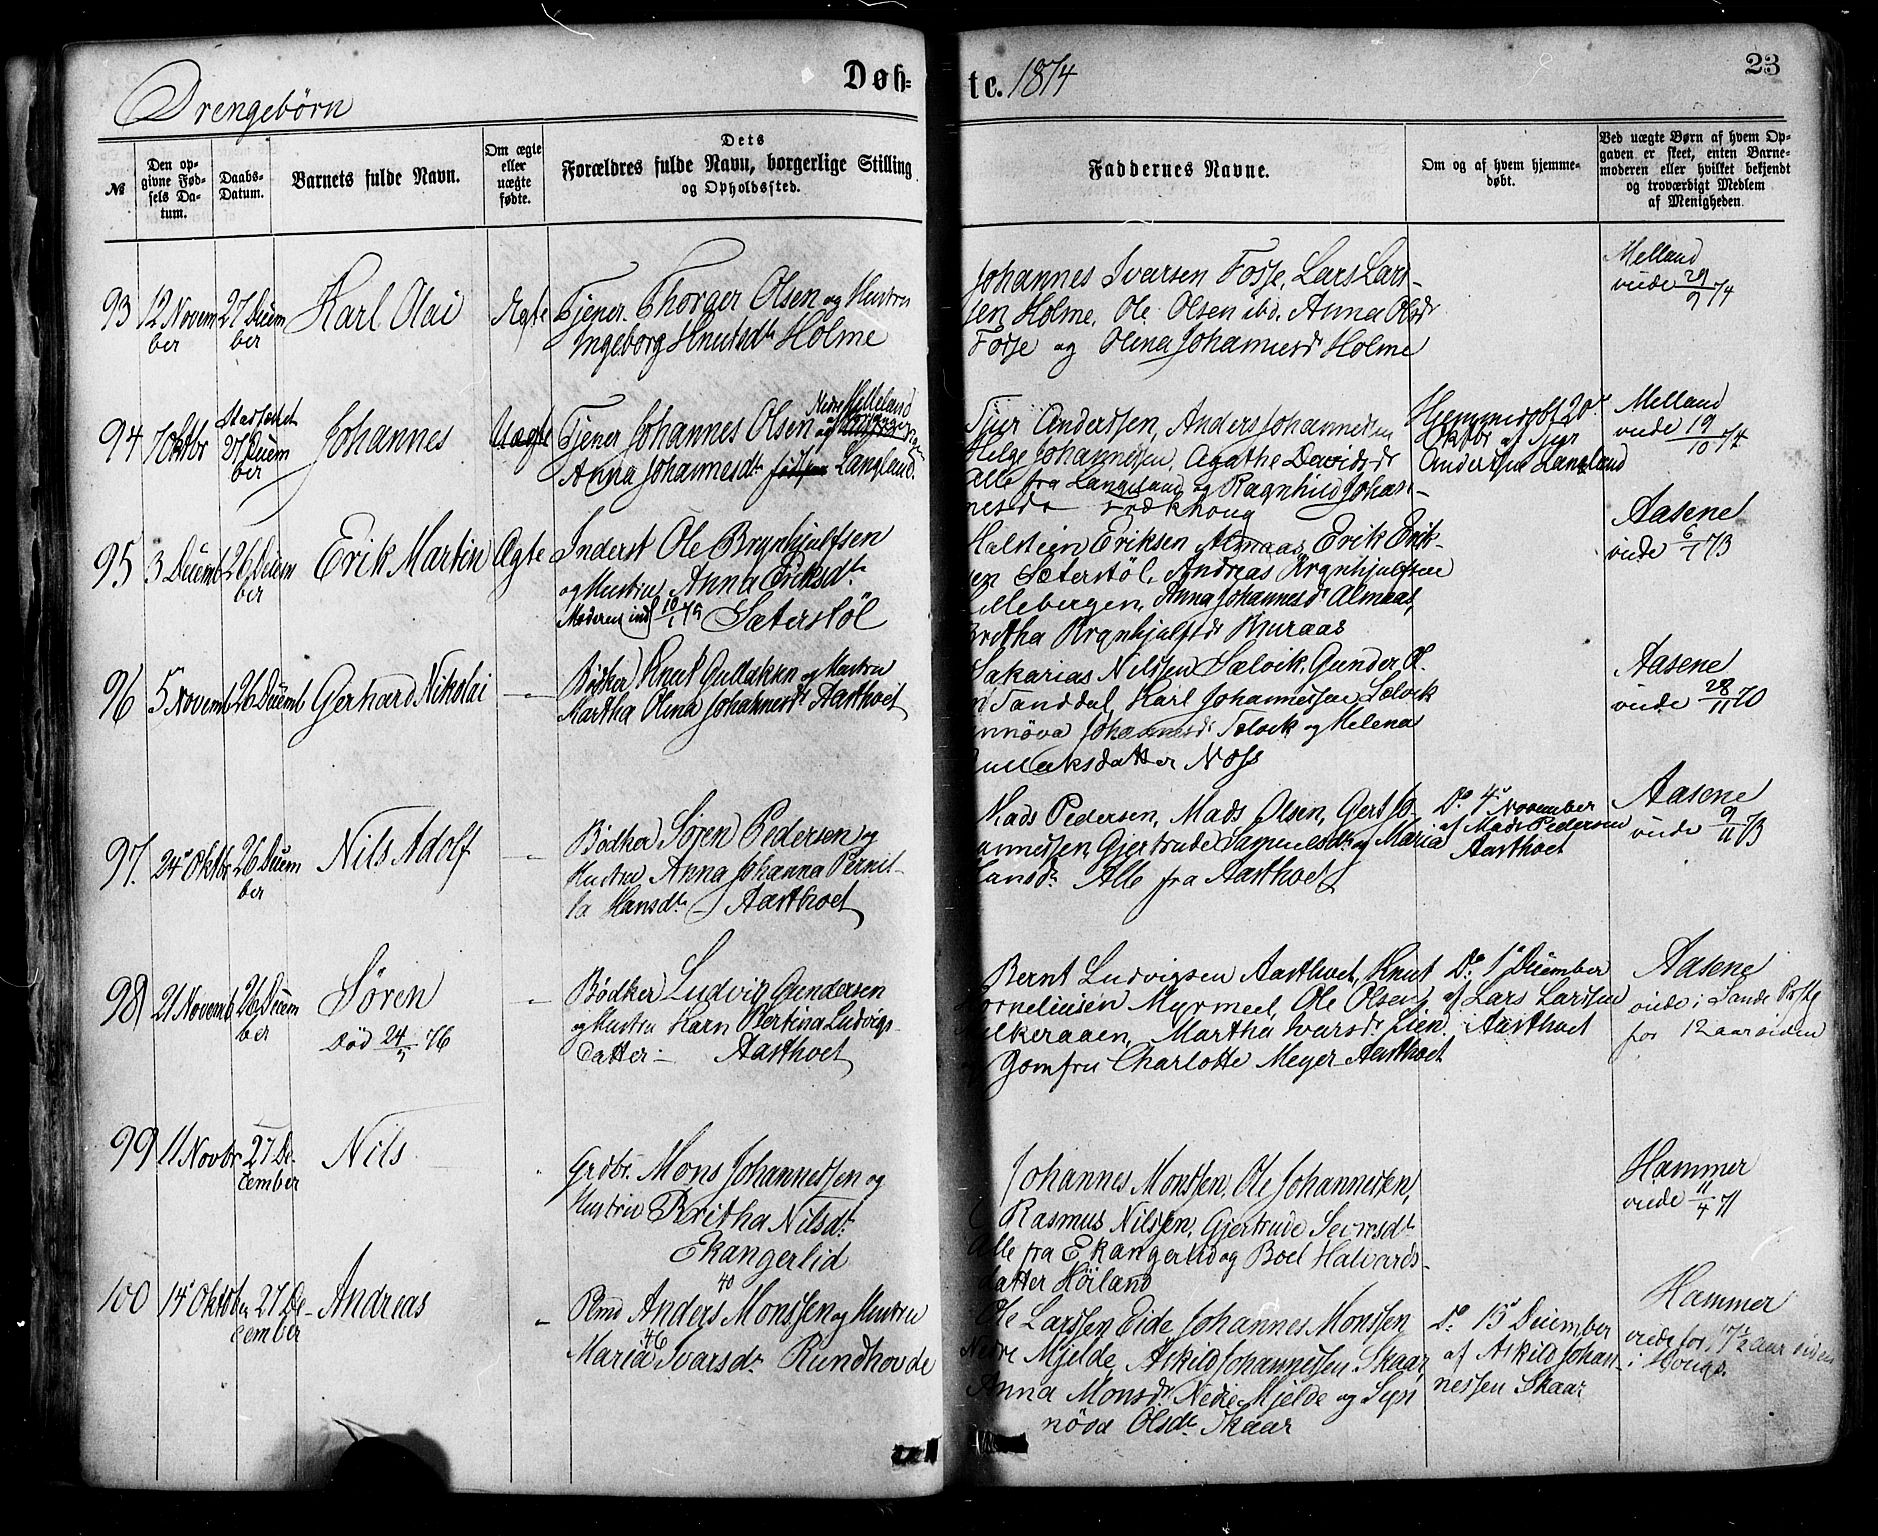 Drengebørn
Døb=
te. 1874
23
№
Den op-
givne Fød-
sels Da-
tum.
Daabs-
Datum.
Barnets fulde Navn.
Om ægte
eller
uægte
fødte.
Dets
Forældres fulde Navn, borgerlige Stilling
og Opholdssted.
Faddernes Navne.
Om og af hvem hjemme-
døbt.
Ved uægte Børn af hvem Op-
gaven er skeet, enten Barne-
moderen eller hvilket bekjendt
og troværdigt Medlem
af Menigheden.
93
12 Novem
ber
27 Decem
ber
Karl Olai
Ægte
Tjener Thorger Olsen og Hustru
Ingeborg Knutsdr Holme
Johannes Ivarsen Fosse, Lars Lars-
sen Holme, Ole Olsen ibd. Anna Olsdr
Fosse og Olina Johannesdr Holme
Melland
viede 29/9 74
94
7 Oktbr
Stadfæstet
27 Decem
ber
Johannes
Uægte
Tjener Johannes Olsen Nedre Helleland
og
Anna Johannesdr Langeland
Sjur Anderssen, Anders Johannessen
Helge Johannessen, Agathe Davidsdr
Alle fra Langeland og Ragnhild Johan-
nesdr
Hjemmedøbt 20de
Oktbr af Sjur
Anderssen Langeland
Melland
viede 19/10 74
95
3 Decemb
26 Decem
ber
Erik Martin
Ægte
Inderst Ole Brynhjulfsen
og Hustru Anna Eriksdr
Moderen indl Sæterstøl
Halstein Eriksen Almaas, Erik Erik-
sen Sæterstøl, Andreas Brynhjulfsen
Lillebergen, Anna Johannesdr Almaas,
Britha Brynhjulfsdr Bjuraas
Aasene
viede 6/1 73
96
5 Novemb
26 Decemb
Gerhard Nikolai
– " –
Bødker Knut Gullaksen og Hustru
Martha Olina Johannesdr Aastvedt
Sakarias Nilssen Sælvik, Gunder O.
Tanddal, Karl Johannessen Sælvik
Johannesdr Sælvik og Helena
Gullaksdatter Noss
Aasene
viede 28/11 70
97.
24 Oktbr
26 Decem
ber
Nils Adolf
– " –
Bødker Søren Pedersen og
Hustru Anna Johanna Pernil-
la Hansdr Aastvedt
Mads Pedersen, Mads Olsen, Gert Jo-
hannessen, Gjertrude Samuelsdr og Maria
Hansdr Alle fra Aastvedt
Do 4de November
af Mads Pedersen
Aastvedt
Aasene
viede 9/11 73
98
21 Novemb
26 Decem
ber
Søren
Død 24/5 76
– " –
Bødker Ludvig Gundersen
og Hustru Karn Bertina Ludvigs-
datter – Aastvedt
Bernt Ludvigsen Aastvedt, Knut
Corneliusen Myrmel, Ole Olsen
Martha Ivarsdr Lien
og Jomfru Charlotte Meyer Aastvedt
Do 1ste December
af Lars Larssen
Aastvedt
Aasene
viede i Sande Præstg
for 12 aar siden
99
11 Novbr
27 De-
cember
Nils
Grdbr. Mons Johannessen og
Hustru Britha Nilsdr
Ekangerlid
Johannes Monssen, Ole Johannessen,
Rasmus Nilssen, Gjertrude Seimsdr
Alle fra Ekangerlid og Boel Halvards-
datter Høiland
Hammer
viede 11/4 71
100
14 Oktober
27 De-
cember
Andreas
– " –
40
Plmd Anders Monssen og Hustru
46
Maria Ivarsdr Rundhovde
Ole Larssen Eide Johannes Monssen
Nedre Mjelde, Askild Johannessen Skaar,
Anna Monsdr Nedre Mjelde og Syn
nøva Olsdr Skaar
Do 13de December
af Askild Johan-
nessen Skaar
Hammer
viede for 17½ aar siden
i Hougs.